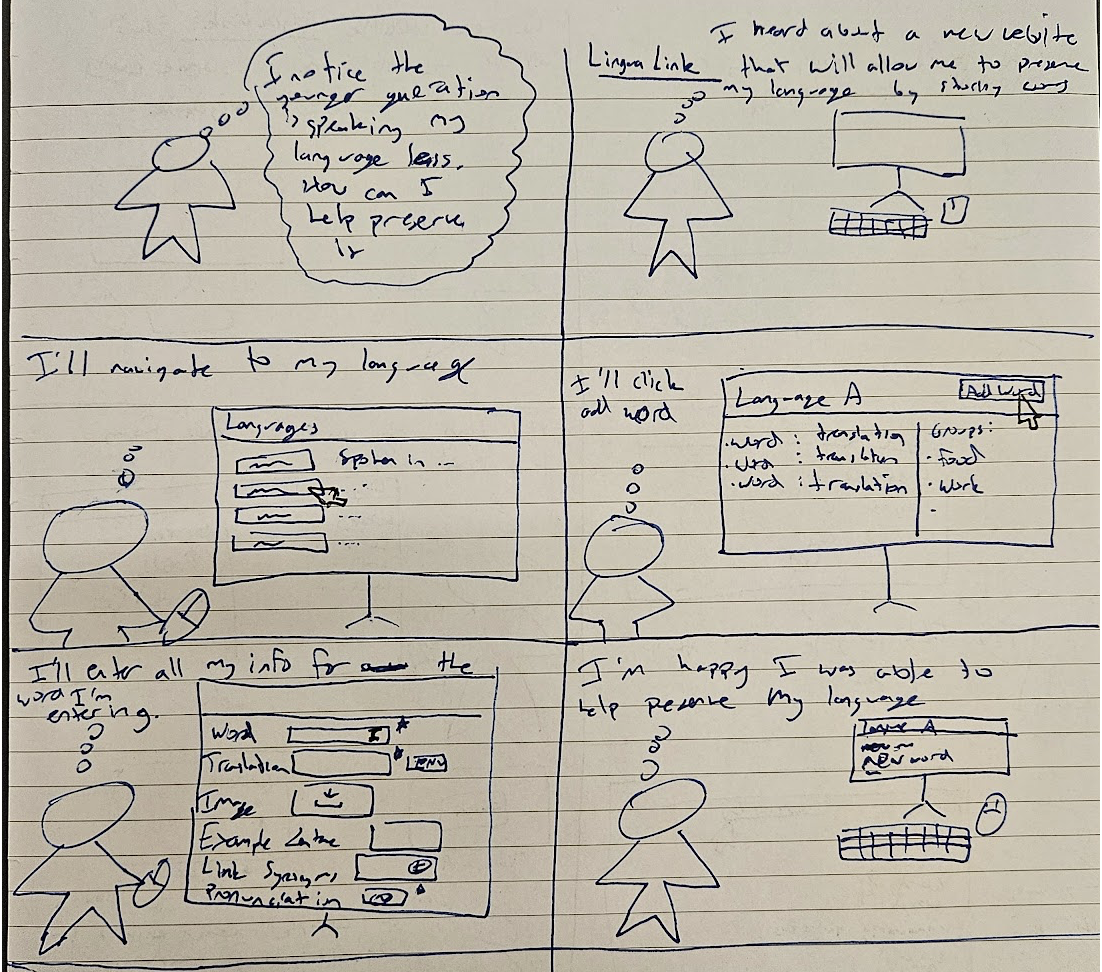 I notice the
younger
speaking my
language less.
How can I
help preserve
it
I heard about a new
Lingua Link
that will allow me to preserve
my language by
I'll navigate to my language
Languages
Spoken in ...
...
...
...
I'll click
add word
Language A
Add Word
• word : translation
• word : translation
• word : translation
Groups:
• Food
• Work
•
I'll enter all my info for the
word I'm
entering.
Word *
Translation * ENV
Image
Example
Link
Pronunciation *
I'm happy I was able to
help preserve my language
A
new word